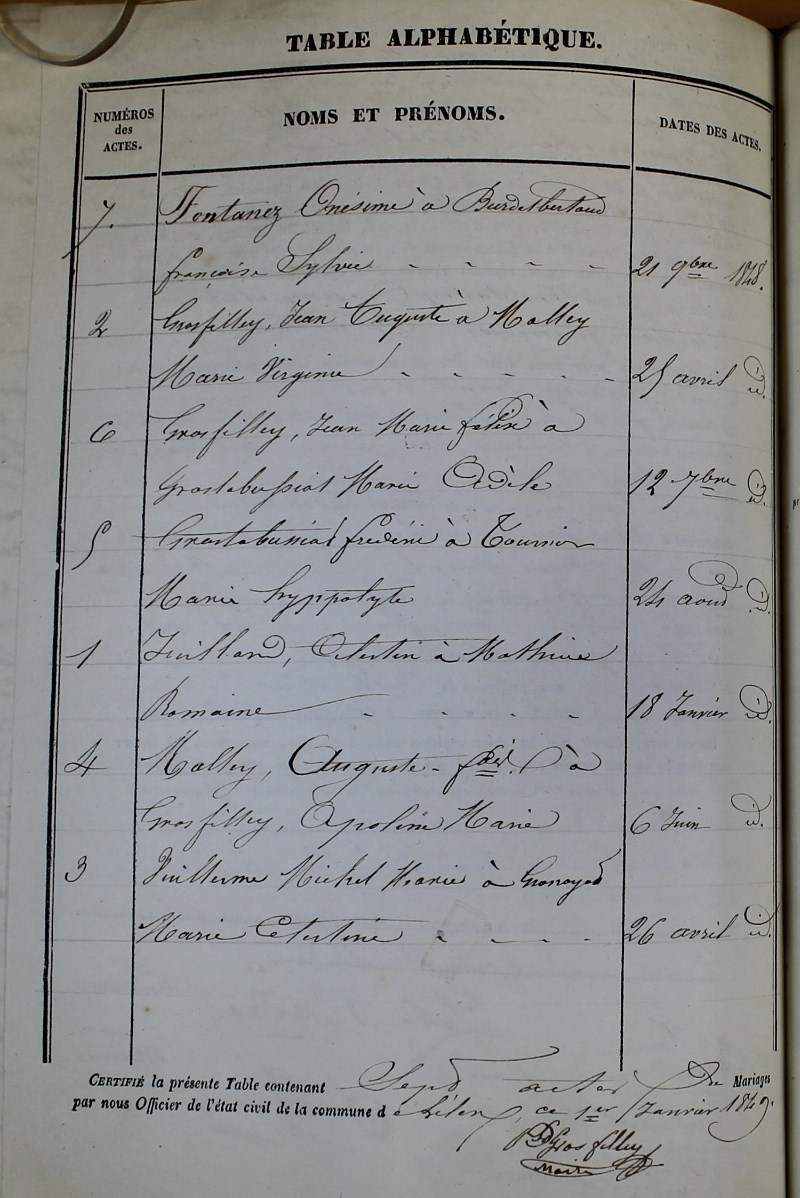 TABLE ALPHABÉTIQUE.
NUMÉROS des ACTES.
NOMS ET PRÉNOMS.
DATES DES ACTES.
7. Fontanez Onésime à Burdetbertaud
françoise Sylvie - - - - 21 9bre 1848.
2 Grosfilley, Jean Auguste à Molley
Marie Virginie - - - - 25 avril id.
6 Grosfilley, Jean Marie félix à
Grostabussiat Marie Adèle 12 7bre id.
5 Grostabussiat frédéric à Tournier
Marie hyppolyte 24 aout id.
1 Juilland, Celestin à Mathieu
Romaine - - - - 18 Janvier id.
4 Molley, Auguste - à
Grosfilley, Apoline Marie 6 Juin id.
3 Vuillerme Michel Marie à
Marie Celestine - - - - 26 avril id.
CERTIFIÉ la présente Table contenant Sept actes De Mariages
par nous Officier de l'état civil de la commune d e Lélex, ce 1er Janvier 1849.
Grosfilley
Maire